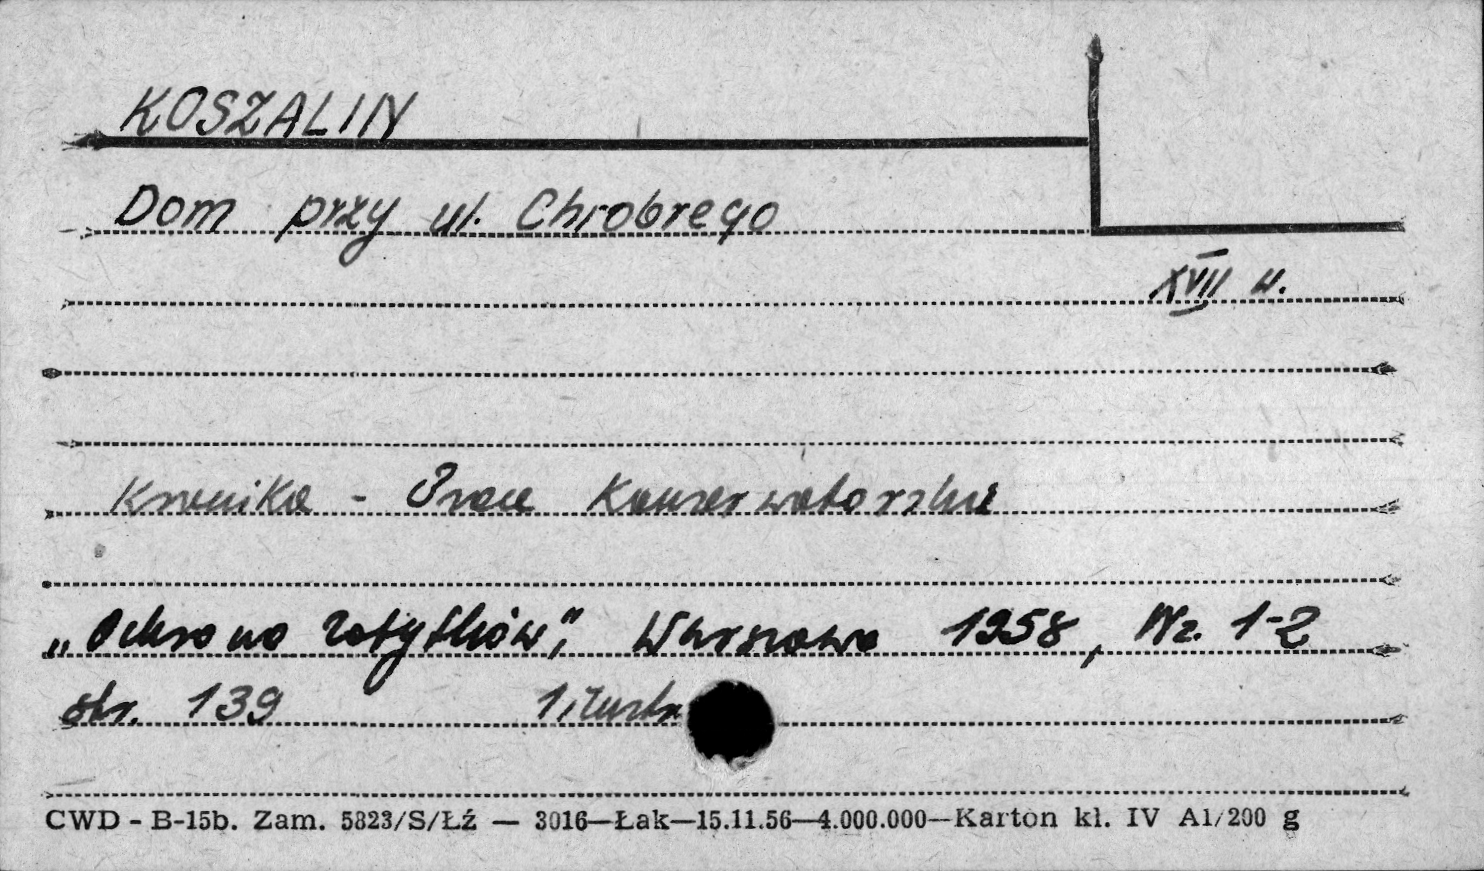 KOSZALIN
Dom przy ul. Chrobrego
XVII w.
Kronika - Prace Konserwatorskie
„Ochrona Zabytków", Warszawa 1958, Nr. 1-2
str. 139 1 ilustr
CWD - B-15b. Zam. 5823/S/Łź — 3016—Łak—15.11.56—4.000.000—Karton kl. IV A1/200 g